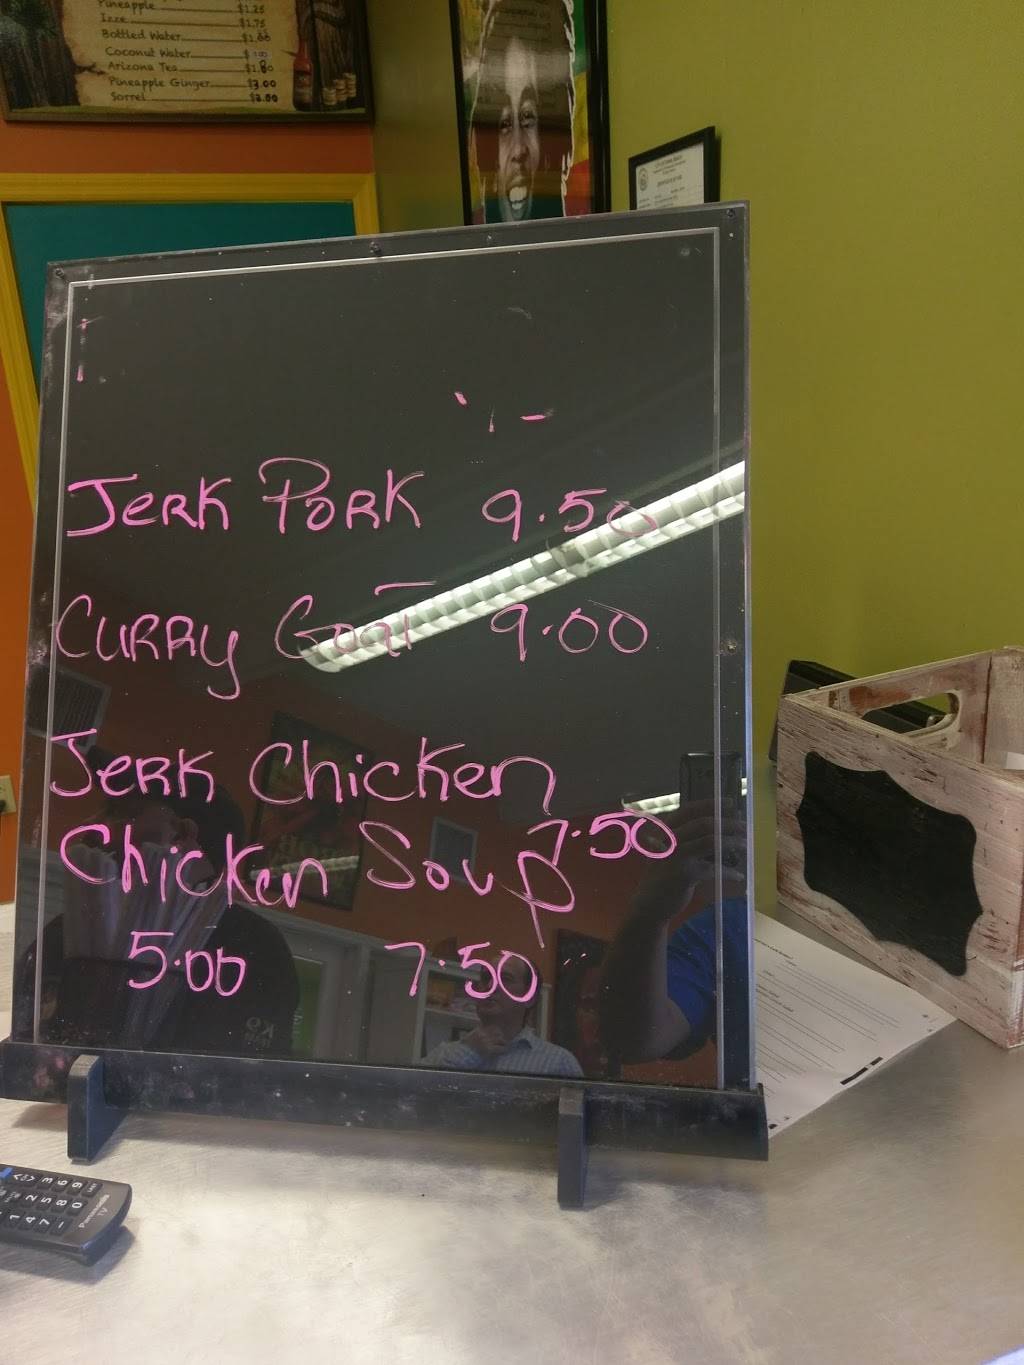 Pineapple $1.25
Izze $1.75
Bottled Water $1.00
Coconut Water $
Arizona Tea $1.80
Pineapple Ginger $3.00
Sorrel $3.00
JERK PORK 9.50
CURRY Goat 9.00
JERK Chicken
7.50
Chicken Soup
5.00 7.50
Panasonic
TV
1 2 3
4 5 6
7 8 9
0